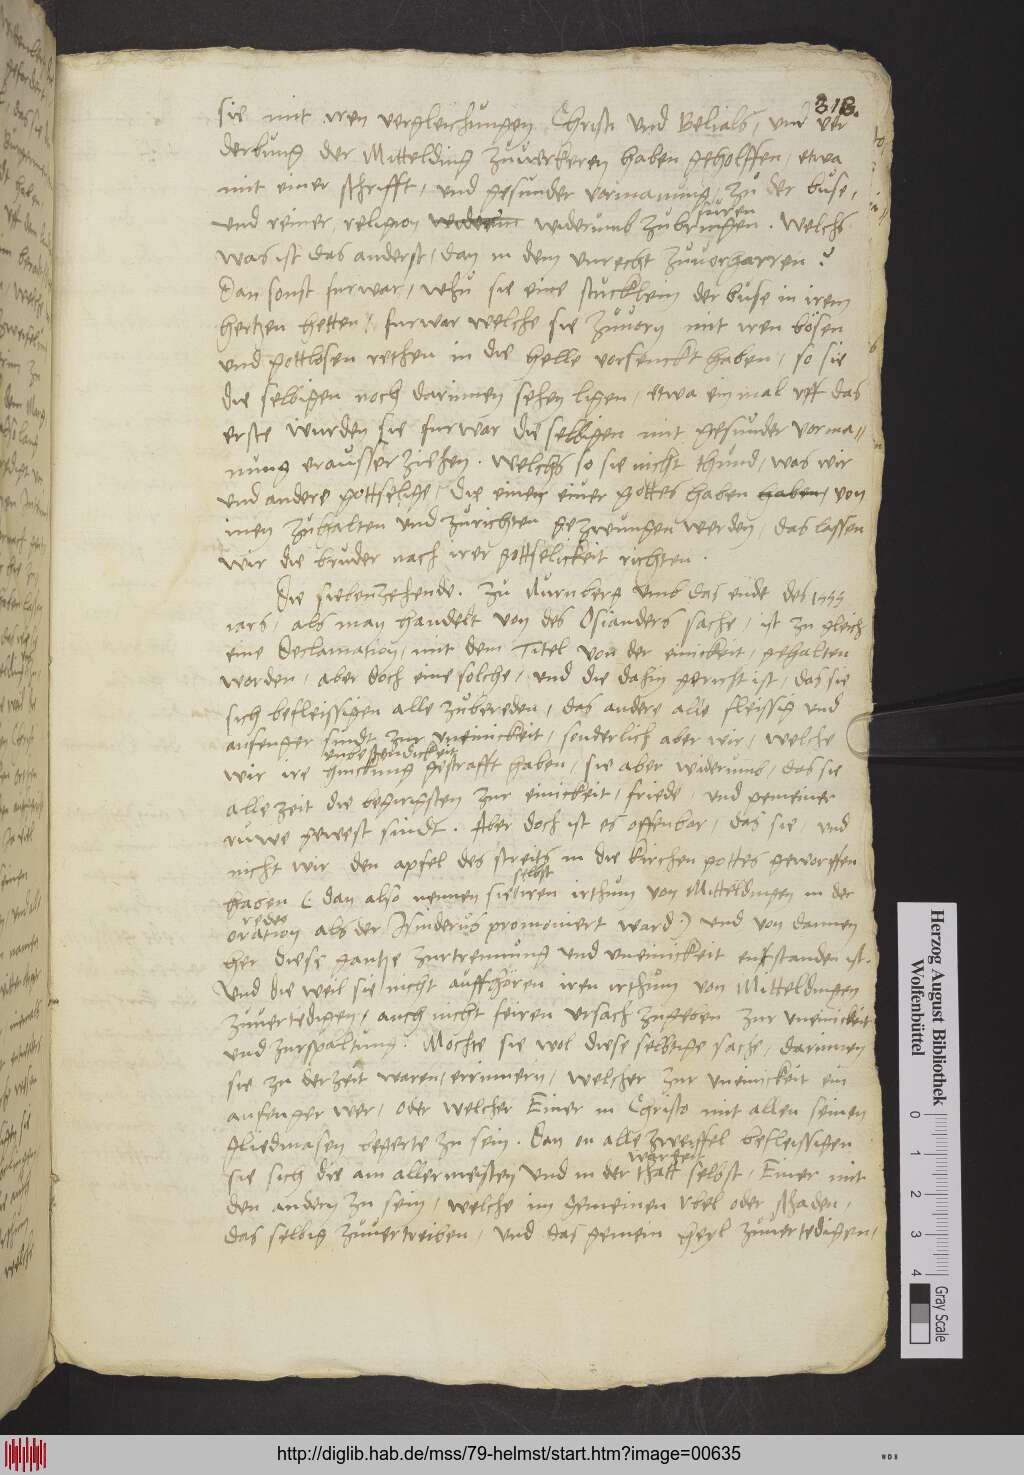 318.
sie mit iren vergleichungen Christi und Belials, und ver
derbung der Mittelding zuwerkeren haben geholffen, etwa
mit einer schrifft, und gesunder vormanung, zu der buse,
füren
und reiner religion widerumb zubringen. Welchs
was ist das anderst, dan in dem unrecht zuvorharren?
Dan sonst furwar, whu sie eine stucklein der buse in irem
hertzen hetten, furwar welche sie zuvorn mit iren bösen
und gottlosen rethen in die helle vorsenckt haben, so sie
die selbigen noch darinnen sehen ligen, etwa ein mal uff das
erste wurden sie furwar die selbigen mit gesunder vorma=
nung erausser ziehen. Welchs so sie nicht thund, was wir
und andere gottselige, die einen eiver gottes haben haben, von
inen zuhalten und zurichten gezwungen werden, das lassen
wir die bruder nach irer gottselickeit richten.
Die siebenzehende. Zu Nurnberg umb das ende des 1555
iars, als man handelt von des Osianders sache, ist zu gleich
eine Declamation, mit dem Titel von der einickeit, gehalten
worden, aber doch eine solche, und die dahin gericht ist, das sie
sich befleissigen alle zubereden, das andere alle fleissig und
anfenger sindt zur uneinickeit, sonderlich aber wir, welche
unbestendickeit
wir ire gestrafft haben, sie aber widerumb, das sie
alle zeit die begirigsten zur einickeit, friede, und gemeiner
ruwe gewest sindt. Aber doch ist es offenbar, das sie, und
nicht wir den apfel des streits in die kirchen gottes geworffen
selbst
haben (dan also nennen sie iren irthum von Mitteldingen in der
rede
oration als der Hunderus promoviert ward) und von dannen
her diese gantze zurtrennung und uneinickeit entstanden ist.
Und die weil sie nicht auffhören iren irthum von Mitteldingen
zuvertedigen, auch nicht feiren ursach zugeben zur uneinickeit
und zurspaltung. Mochte sie wol diese selbige sache, darinnen
sie zu der zeit waren, errinnern, welcher zur uneinickeit ein
anfenger wer, oder welcher Einer in Christo mit allen seinen
gliedmasen begerte zu sein. Dan on alle zweiffel befleissigen
warheit
sie sich die am allermeisten und in der thatt selbst, Einer mit
den andern zu sein, welche im gemeinen ubel oder schaden,
das selbig zuvertreiben, und das gemein heyl zuvertedigen,
Herzog August Bibliothek
Wolfenbüttel
0 1 2 3 4
Gray Scale
http://diglib.hab.de/mss/79-helmst/start.htm?image=00635